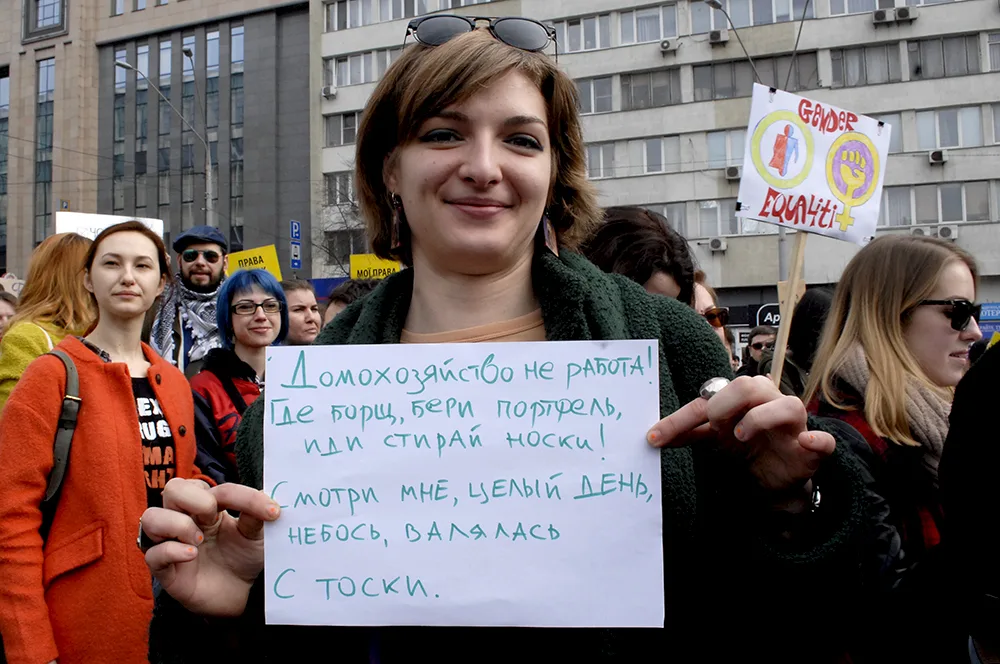 Домохозяйство не работа!
Где борщ, бери портфель,
иди стирай носки!
Смотри мне, целый день,
небось, валялась
с тоски.
GENDER
EQUALITI
ПРАВА
МОЇ ПРАВА
P